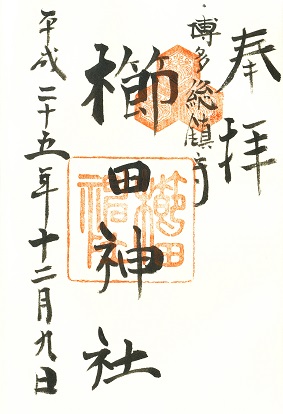 奉拝
博多総鎮守
櫛田神社
平成二十五年十二月九日